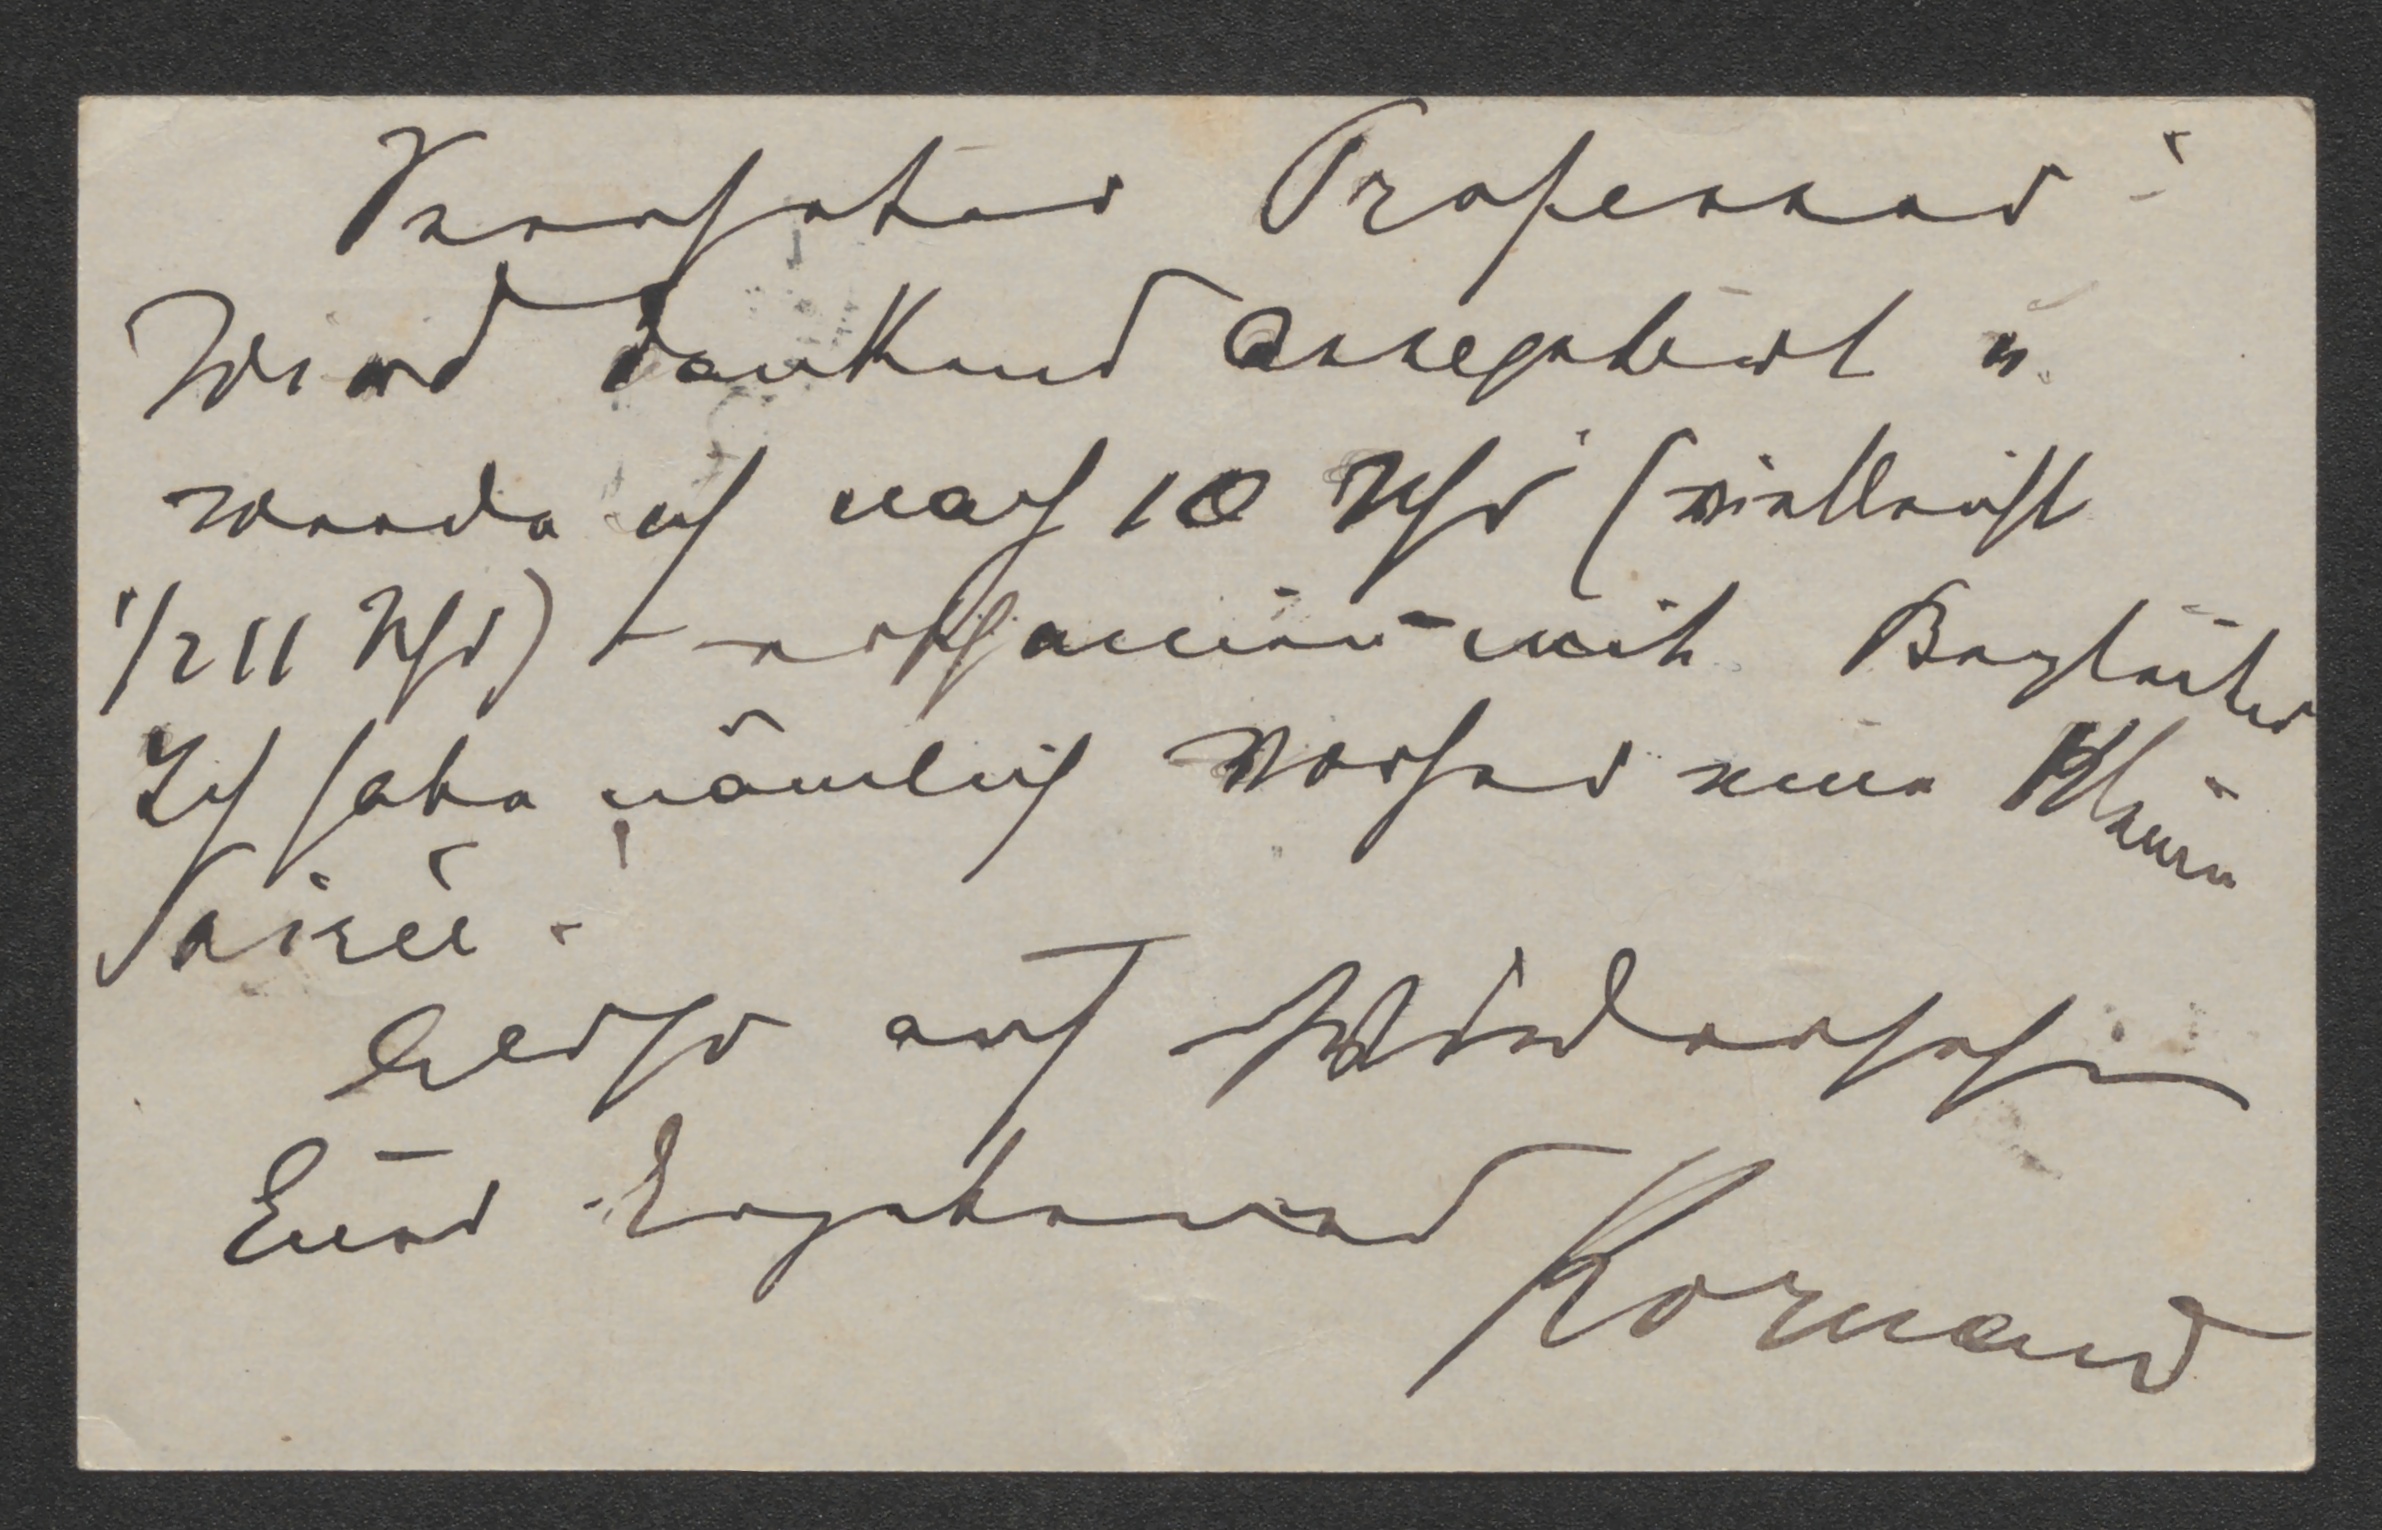 Verehrter Professor!
Wird dankend acceptiert u.
werde ich nach 10 Uhr (vielleicht
1/2 11 Uhr) – erscheinen – mit Begleiter
Ich habe nämlich vorher eine kleine
Soirée.
Also auf Wiedersehen
Euer Ergebener